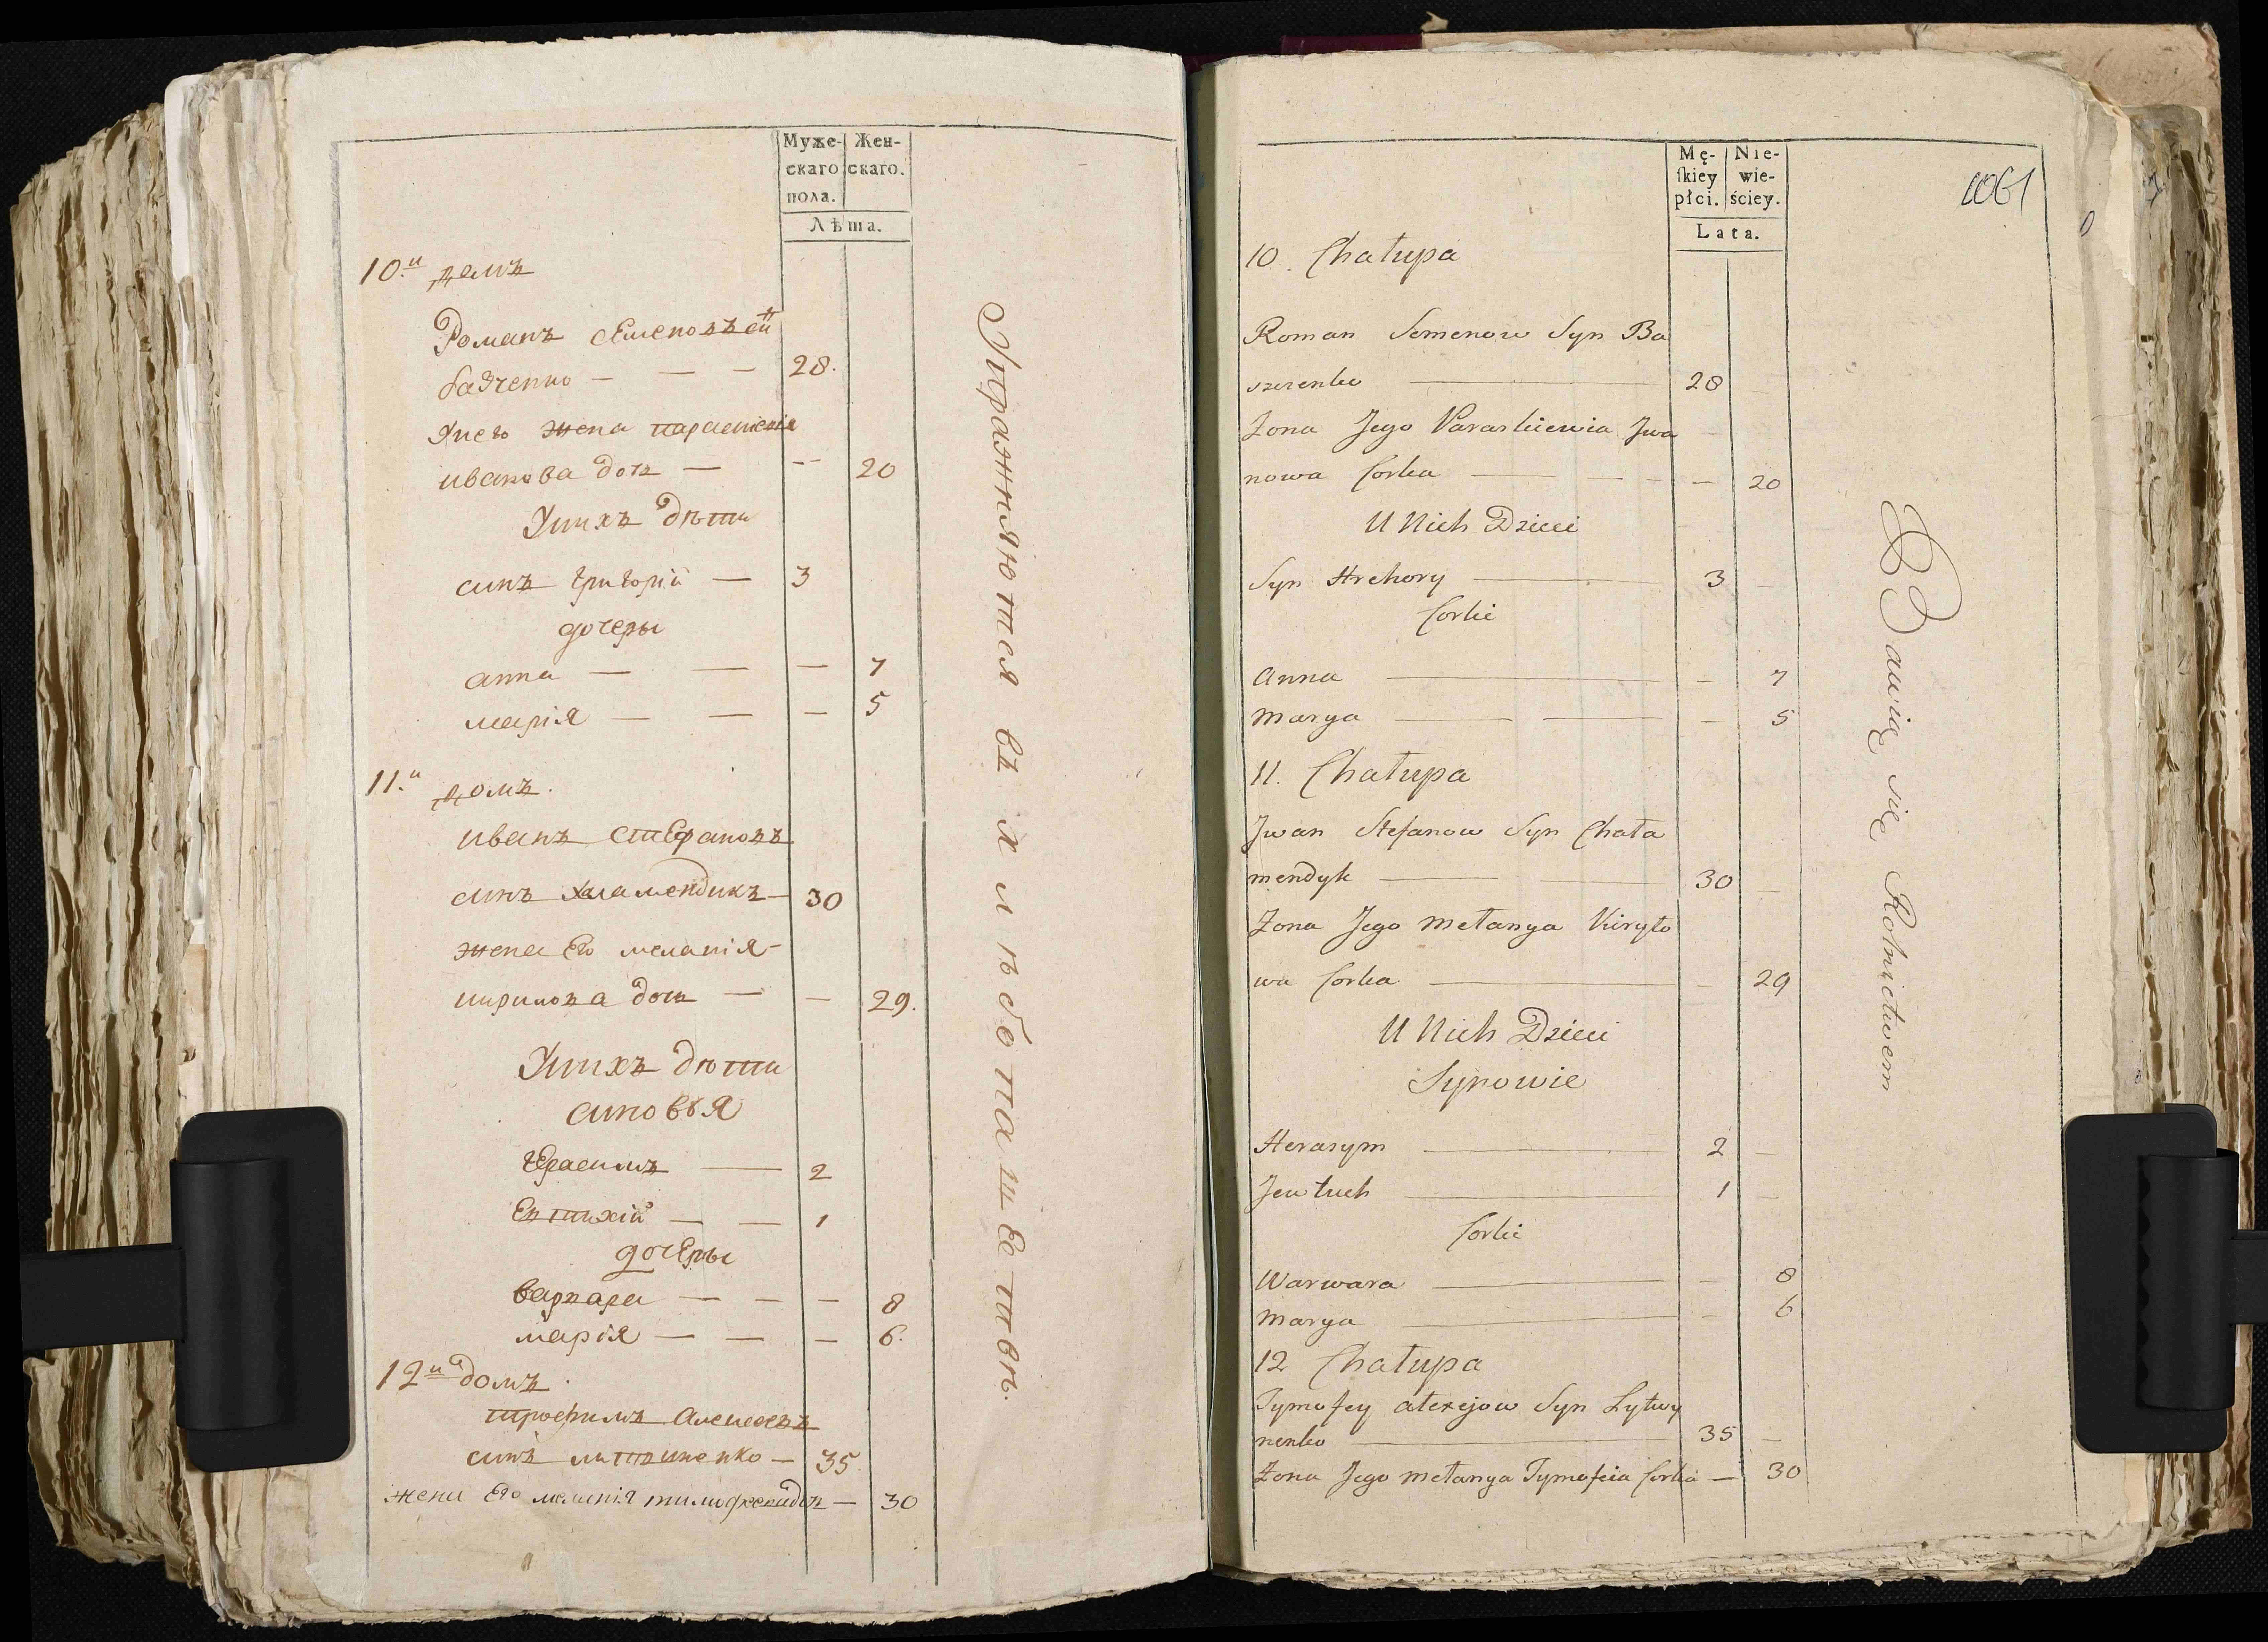 Муже-
скаго
пола.
Жен-
скаго.
Лѣта.
10.й домъ
Романъ Семеновъ сй
28.
Унего жена параскевія
иванова дочь — — 20
Унихъ дѣти
синъ григорій — 3
дочеры
анна — — — 7
марія — — — 5
11.й домъ.
иванъ стефановъ
синъ халамендикъ — 30
жена его меланія
кирилова дочь — — 29.
Унихъ дѣти
синовья
герасимъ — 2
Евтихій — — 1
дочеры
варвара — — — 8
марія — — — 6.
12й домъ.
Алексеевъ
синъ литвиненко — 35
жена Его меланія тимофеева дочь — 30
Упражняются въ хлѣбопашествѣ.
Mę-
skiey
płci.
Nie-
wie-
ściey.
Lata.
1061
10. Chałupa
Roman Semenow Syn Ba
szerenko — 28
Żona Jego Paraskiewia Jwa
nowa Corka — — — — 20
U Nich Dzieci
Syn Hrehory — 3 —
Corki
Anna — — 7
Marya — — — 5
11. Chałupa
Jwan Stefanow Syn Chała
mendyk — — 30 —
Żona Jego Mełanya Kiryło
wa Corka — — 29
U Nich Dzieci
Synowie
Herasym — 2 —
Jewtuch — 1 —
Corki
Warwara — — 8
Marya — — 6
12 Chałupa
Tymofey Alexejow Syn Lytwy
nenko — 35 —
Żona Jego Mełanya Tymofeia Corka — 30
Bawią się Rolnictwem